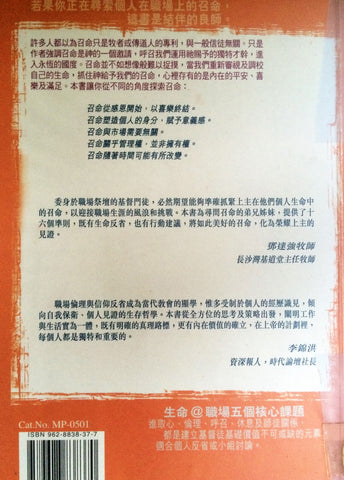 若果你正在尋索個人在職場上的召命，
這書是結伴的良師。
許多人都以為召命只是牧者或傳道人的專利，與一般信徒無關。只是
作者強調召命是神的一個邀請，呼召我們運用祂賜予的獨特才幹，進
入永恆的國度。召命並不如想像般難以捉摸，當我們重新審視及調校
自己的生命，抓住神給予我們的召命，心裡存有的是內在的平安、喜
樂及滿足。本書讓你從不同的角度探索召命：
召命從感恩開始，以喜樂終結。
召命塑造個人的身分，賦予意義感。
召命與市場需要無關。
召命關乎管理權，並非擁有權。
召命隨著時間可能有所改變。
委身於職場祭壇的基督門徒，必然期望能夠準確抓緊上主在他們個人生命中
的召命，以迎接職場生涯的風浪和挑戰。本書為尋問召命的弟兄姊妹，提供了十
六個準則，既有生命反省，也有行動建議，將如此美好的召命，化為榮耀上主的
見證。
鄧達強牧師
長沙灣基道堂主任牧師
職場倫理與信仰反省成為當代教會的顯學，惟多受制於個人的經歷識見，傾
向自我保衛、個人見證的生存哲學。本書從全方位的思考及策略出發，闡明工作
與生活實為一體，既有明確的真理路標，更有內在價值的確立，在上帝的計劃裡，
每個人都是獨特和重要的。
李錦洪
資深報人，時代論壇社長
生命@職場五個核心課題
進取心、倫理、呼召、休息及師徒關係
都是建立基督徒基礎價值不可或缺的元素
適合個人反省或小組討論。
Cat.No. MP-0501
ISBN 962-8838-37-7